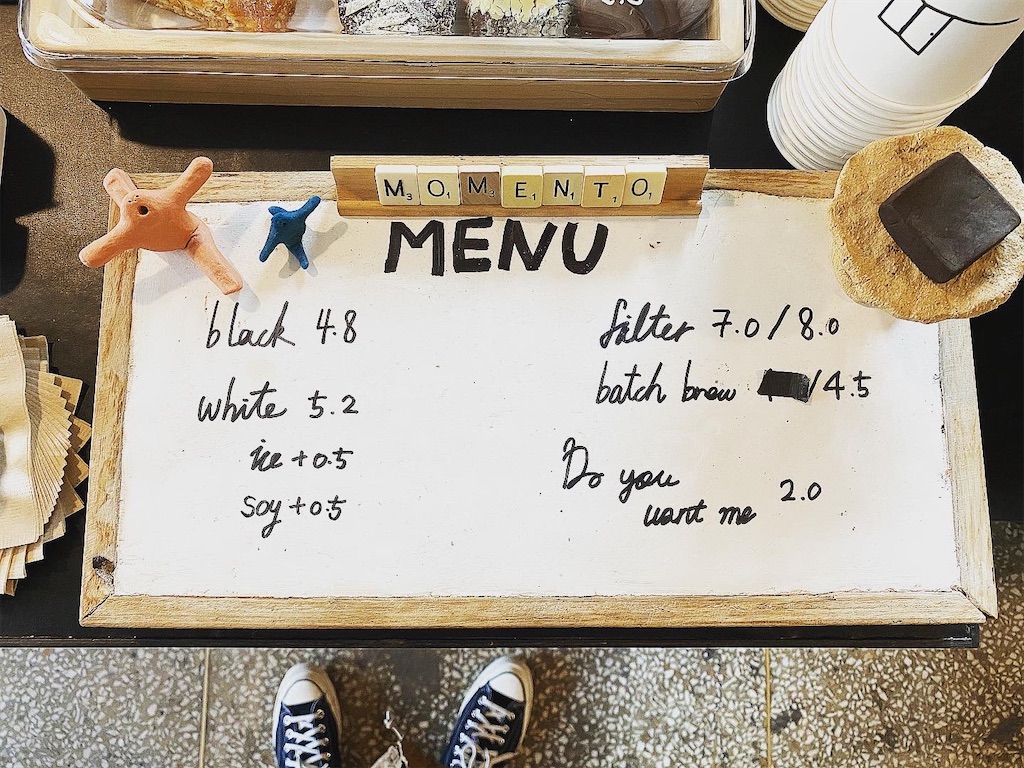 MOMENTO
MENU
black 4.8
white 5.2
ice +0.5
soy +0.5
filter 7.0/8.0
batch brew /4.5
Do you
want me 2.0